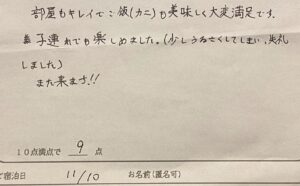 部屋もキレイでご飯(カニ)も美味しく大変満足です。
子連れでも楽しめました。(少しうるさくしてしまい、失礼
しました)
また来ます!!
10点満点で 9 点
ご宿泊日 11/10 お名前(匿名可)